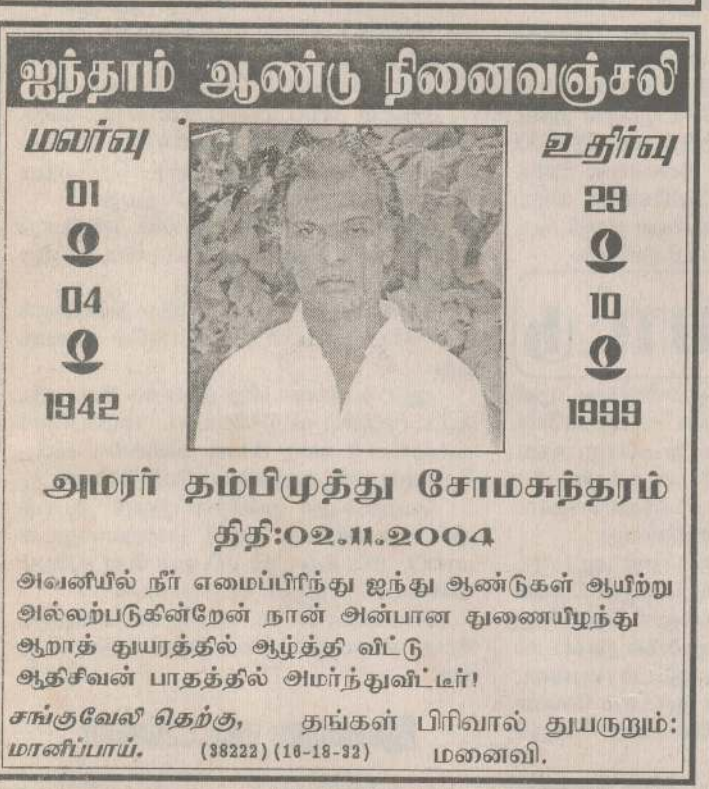 ஐந்தாம் ஆண்டு நினைவஞ்சலி
மலர்வு
01
04
1942
உதிர்வு
29
10
1999
அமரர் தம்பிமுத்து சோமசுந்தரம்
திதி:02.11.2004
அவனியில் நீர் எமைப்பிரிந்து ஐந்து ஆண்டுகள் ஆயிற்று
அல்லற்படுகின்றேன் நான் அன்பான துணையிழந்து
ஆறாத் துயரத்தில் ஆழ்த்தி விட்டு
ஆதிசிவன் பாதத்தில் அமர்ந்துவிட்டீர்!
சங்குவேலி தெற்கு,
மானிப்பாய்.
(38222)(16-18-32)
தங்கள் பிரிவால் துயருறும்:
மனைவி.